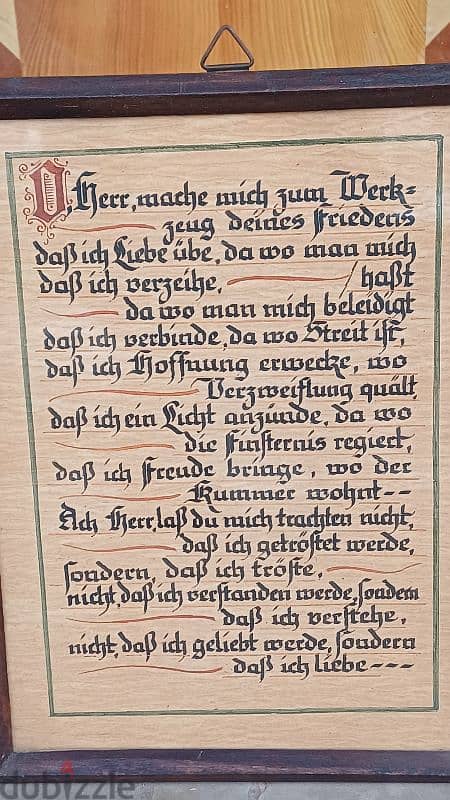 O, Herr, mache mich zum Werk=
zeug deines Friedens
daß ich Liebe übe, da wo man mich
daß ich verzeihe, / haßt
da wo man mich beleidigt
daß ich verbinde, da wo Streit ist,
daß ich Hoffnung erwecke, wo
Verzweiflung quält,
daß ich ein Licht anzünde, da wo
die Finsternis regiert,
daß ich Freude bringe, wo der
Kummer wohnt--
Ach Herr, laß du mich trachten nicht,
daß ich getröstet werde,
sondern, daß ich tröste,
nicht, daß ich verstanden werde, sondern
daß ich verstehe,
nicht, daß ich geliebt werde, sondern
daß ich liebe---
dubizzle